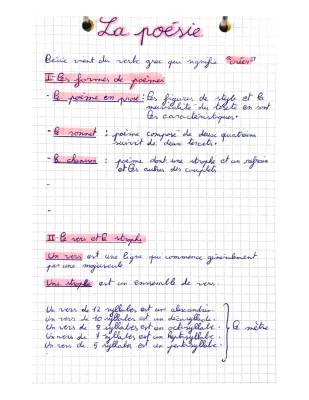 La poésie
Poésie vient du verbe grec qui signifie "créer"
I - Les formes de poèmes
- Le poème en prose : Les figures de style et la
musicalité du texte en sont
les caractéristiques.
- Le sonnet : poème composé de deux quatrains
suivit de deux tercets.
- La chanson : poème dont une strophe et un refrain
et les autres des couplets
-
-
II - Le vers et la strophe
Un vers est une ligne qui commence généralement
par une majuscule
Une strophe est un ensemble de vers.
Un vers de 12 syllabes est un alexandrin.
Un vers de 10 syllabes est un décasyllabe.
Un vers de 8 syllabes est un octosyllabe.
Un vers de 7 syllabes est un heptasyllabe.
Un vers de 5 syllabes est un pentasyllabe.
Le mètre